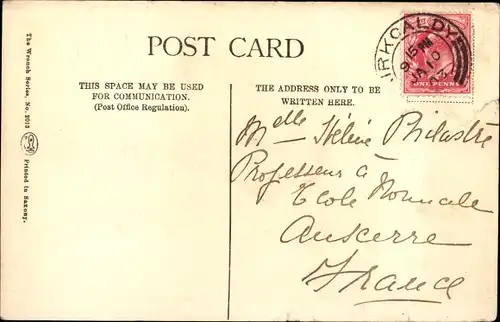 POST CARD
THIS SPACE MAY BE USED
FOR COMMUNICATION.
(Post Office Regulation).
THE ADDRESS ONLY TO BE
WRITTEN HERE.
The Wrench Series, No. 2013
Printed in Saxony.
IRKCALDY
9.15 PM
10
ONE PENNY
Melle Hélène
Professeur à
Ecole Normale
Auxerre
France